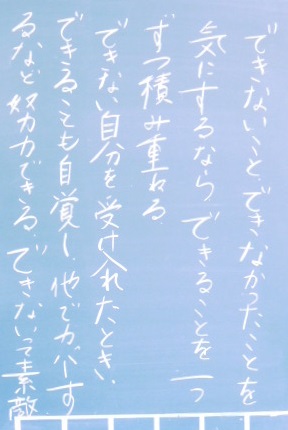 できないこと、できなかったことを
気にするなら できることを 一つ
ずつ積み重ねる
できない自分を 受け入れたとき、
できることも自覚し、他でカバーす
るなど 努力できる。できないって素敵